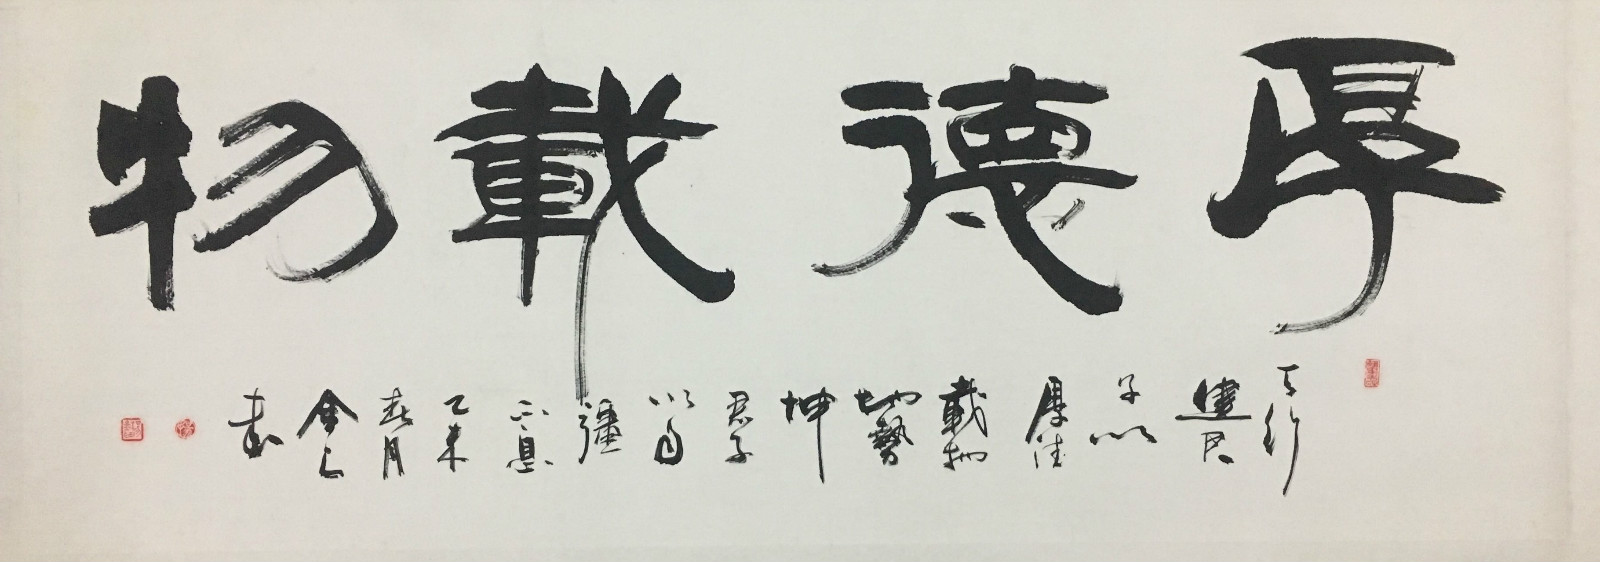 厚德載物
天行
健君
子以
厚德
載物
地勢
坤
君子
以自
彊
不息
乙未
春月
書